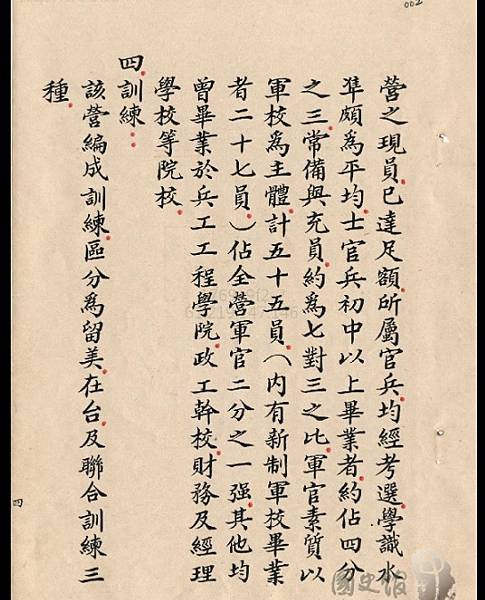 002
營之現員已達足額所屬官兵均經考選學識水
準頗為平均士官兵初中以上畢業者約佔四分
之三常備與充員約為七對三之比軍官素質以
軍校為主體計五十五員（內有新制軍校畢業
者二十七員）佔全營軍官二分之一强其他均
曾畢業於兵工工程學院政工幹校財務及經理
學校等院校
四訓練：
該營編成訓練區分為留美在台及聯合訓練三
種
四
國史館